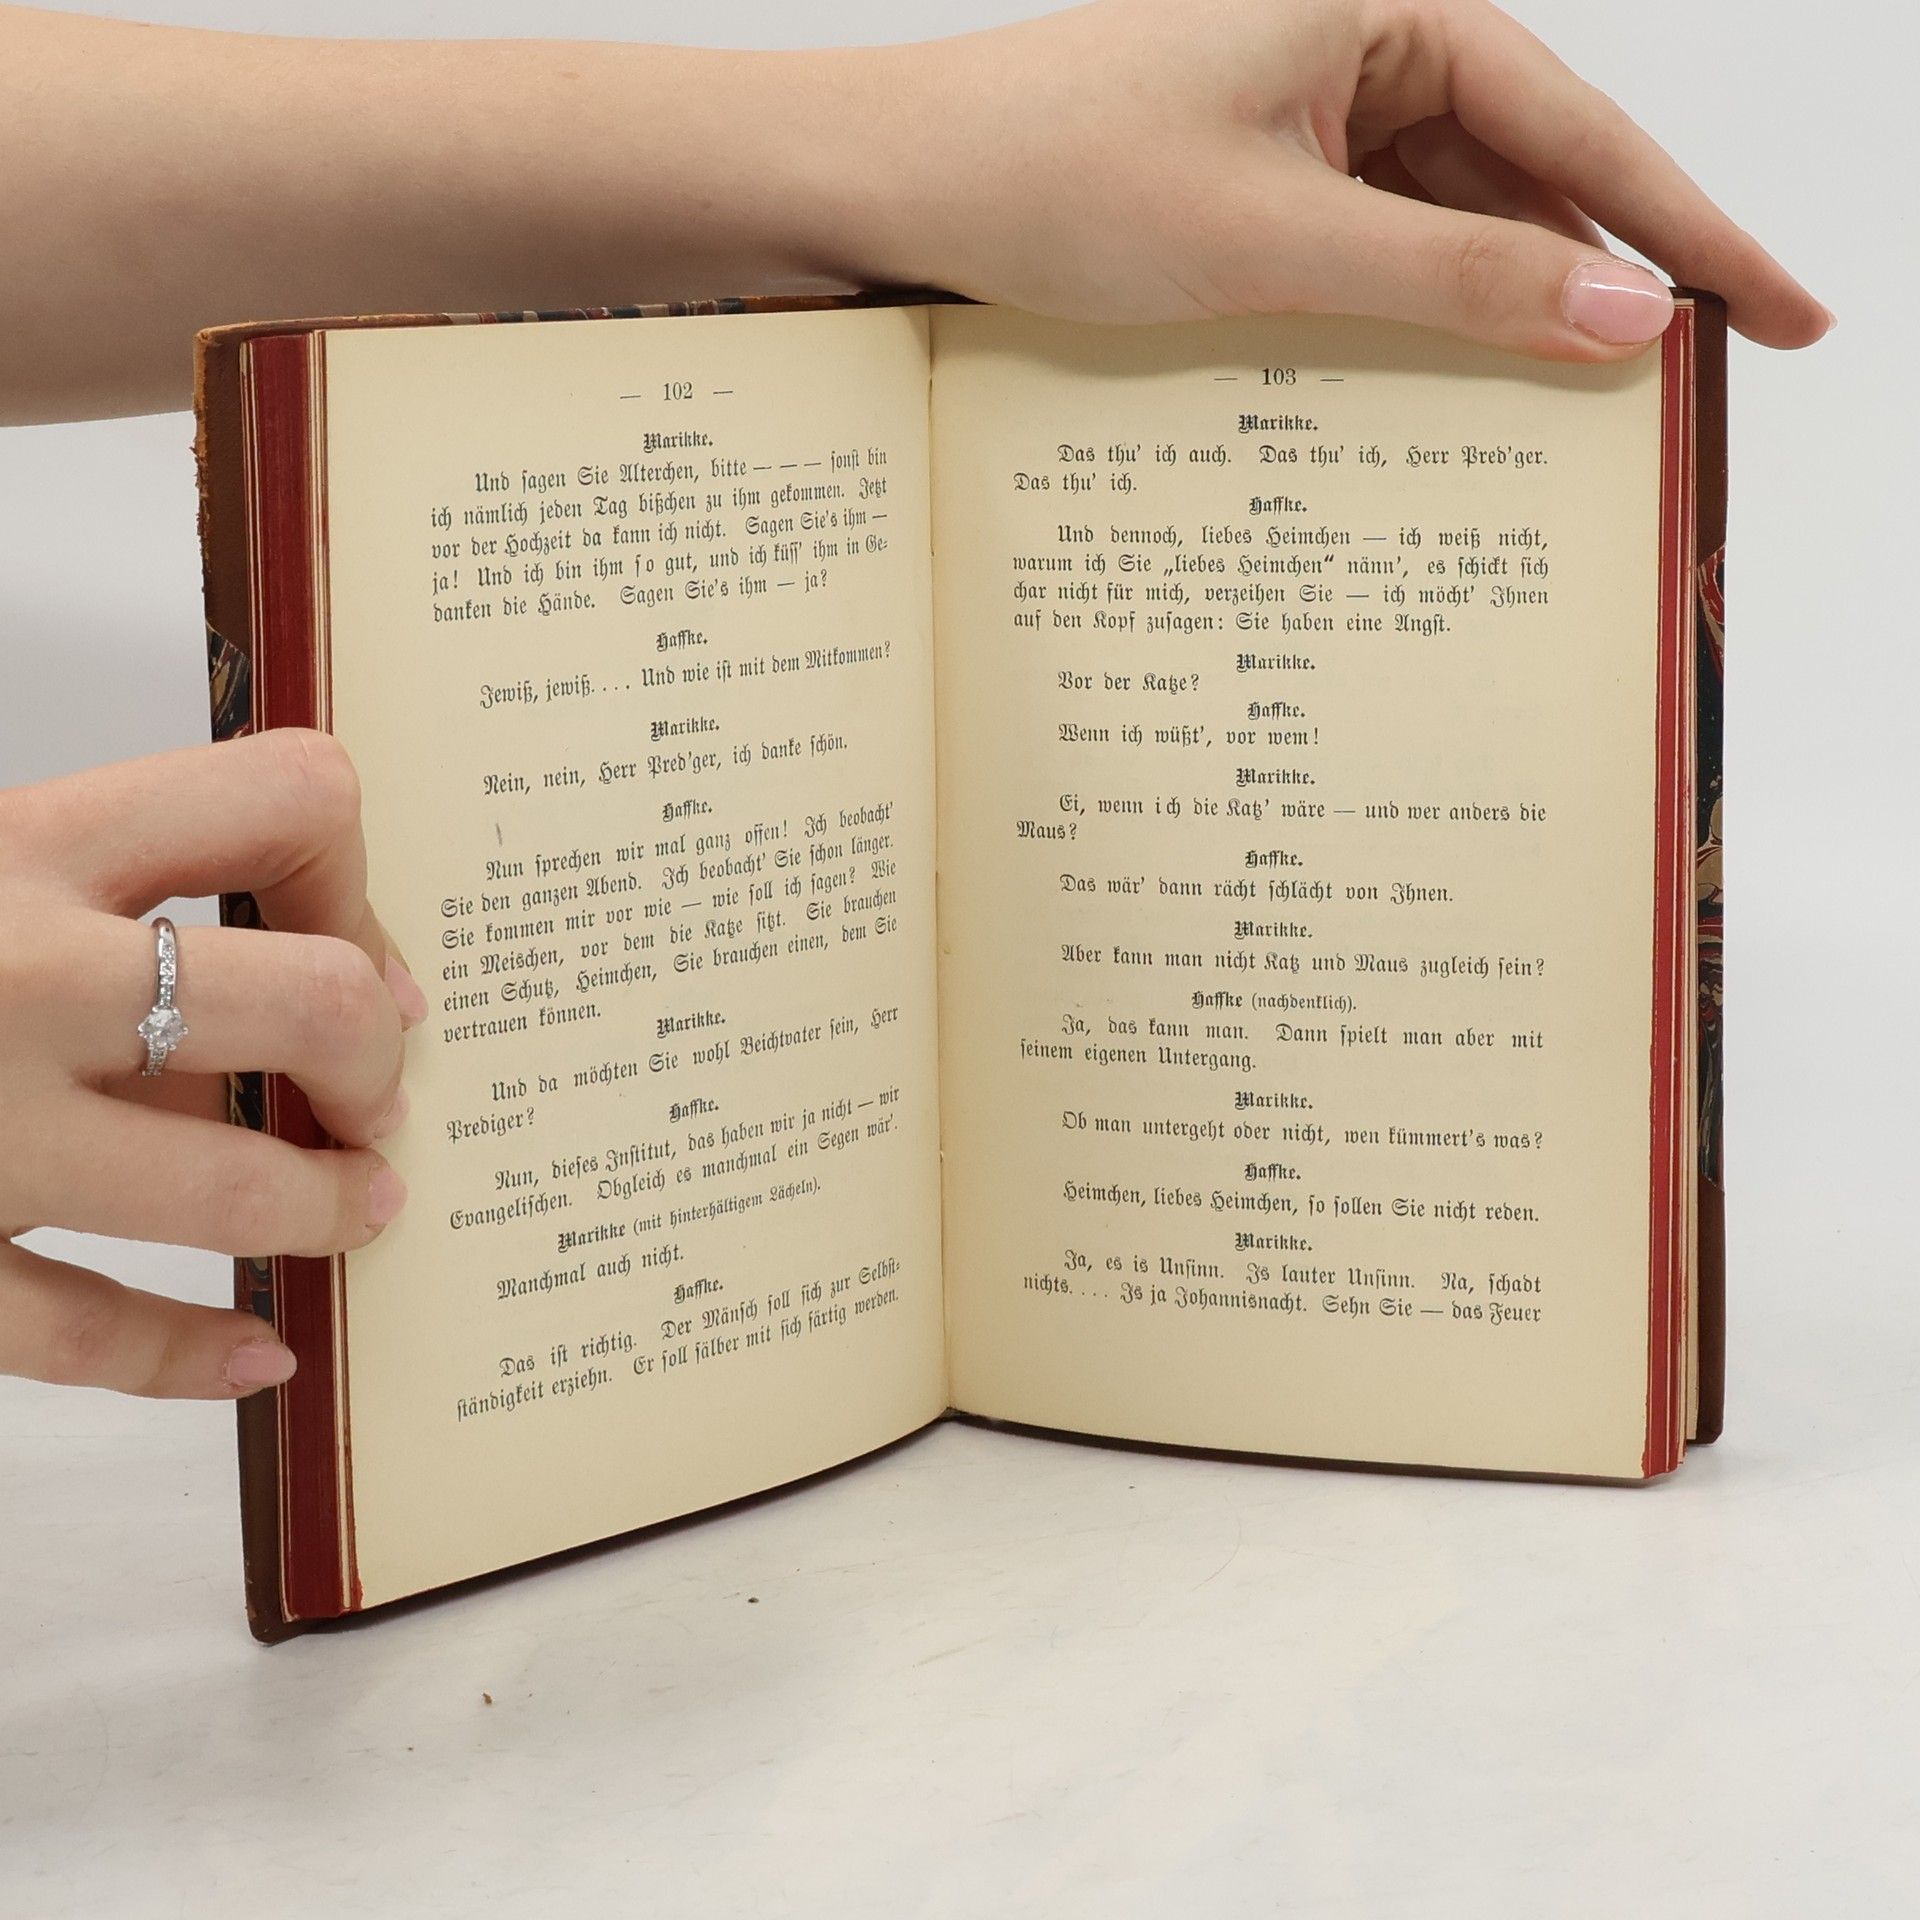 — 102 —
Marikke.
Und sagen Sie Alterchen, bitte — — — sonst bin
ich nämlich jeden Tag bißchen zu ihm gekommen. Jetzt
vor der Hochzeit da kann ich nicht. Sagen Sie's ihm —
ja! Und ich bin ihm so gut, und ich küss' ihm in Ge-
danken die Hände. Sagen Sie's ihm — ja?
Haffke.
Jewiß, jewiß.... Und wie ist mit dem Mitkommen?
Marikke.
Nein, nein, Herr Pred'ger, ich danke schön.
Haffke.
Nun sprechen wir mal ganz offen! Ich beobacht'
Sie den ganzen Abend. Ich beobacht' Sie schon länger.
Sie kommen mir vor wie — wie soll ich sagen? Wie
ein Meischen, vor dem die Katze sitzt. Sie brauchen
einen Schutz, Heimchen, Sie brauchen einen, dem Sie
vertrauen können.
Marikke.
Und da möchten Sie wohl Beichtvater sein, Herr
Prediger?
Haffke.
Nun, dieses Institut, das haben wir ja nicht — wir
Evangelischen. Obgleich es manchmal ein Segen wär'.
Marikke (mit hinterhältigem Lächeln).
Manchmal auch nicht.
Haffke.
Das ist richtig. Der Mänsch soll sich zur Selbst-
ständigkeit erziehn. Er soll sälber mit sich färtig werden.
— 103 —
Marikke.
Das thu' ich auch. Das thu' ich, Herr Pred'ger.
Das thu' ich.
Haffke.
Und dennoch, liebes Heimchen — ich weiß nicht,
warum ich Sie „liebes Heimchen“ nänn', es schickt sich
char nicht für mich, verzeihen Sie — ich möcht' Ihnen
auf den Kopf zusagen: Sie haben eine Angst.
Marikke.
Vor der Katze?
Haffke.
Wenn ich wüßt', vor wem!
Marikke.
Ei, wenn ich die Katz' wäre — und wer anders die
Maus?
Haffke.
Das wär' dann rächt schlächt von Ihnen.
Marikke.
Aber kann man nicht Katz und Maus zugleich sein?
Haffke (nachdenklich).
Ja, das kann man. Dann spielt man aber mit
seinem eigenen Untergang.
Marikke.
Ob man untergeht oder nicht, wen kümmert's was?
Haffke.
Heimchen, liebes Heimchen, so sollen Sie nicht reden.
Marikke.
Ja, es is Unsinn. Is lauter Unsinn. Na, schadt
nichts.... Is ja Johannisnacht. Sehn Sie — das Feuer